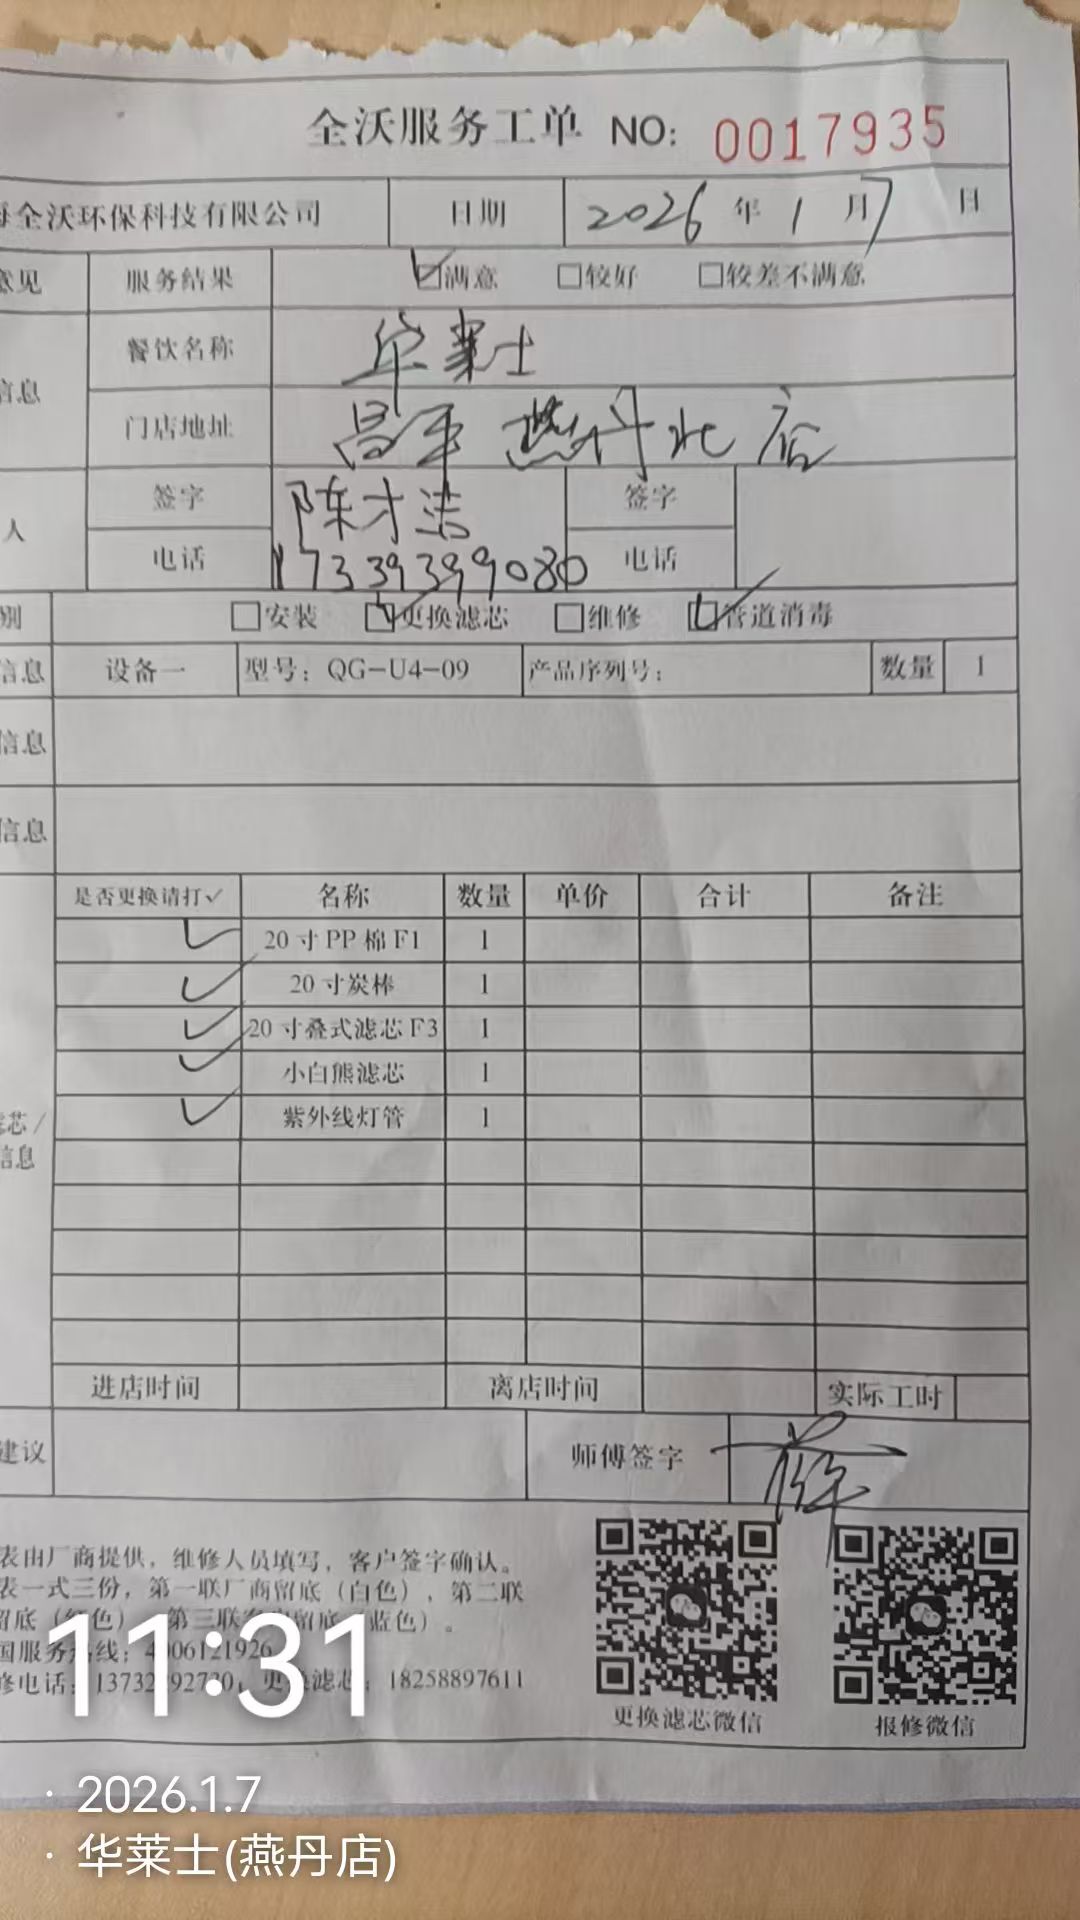 全沃服务工单 NO: 0017935
海全沃环保科技有限公司 日期 2026年1月7日
意见 服务结果 ☑满意 □较好 □较差不满意
信息 餐饮名称 华莱士
门店地址 昌平 燕丹北店
人 签字 陈才洁 签字
电话 17339399080 电话
别 □安装 ☑更换滤芯 □维修 ☑管道消毒
信息 设备一 型号：QG-U4-09 产品序列号： 数量 1
信息
信息
是否更换请打✓ 名称 数量 单价 合计 备注
✓ 20寸PP棉F1 1
✓ 20寸炭棒 1
✓ 20寸叠式滤芯F3 1
✓ 小白熊滤芯 1
✓ 紫外线灯管 1
滤芯/
信息
进店时间 离店时间 实际工时
建议 师傅签字
表由厂商提供，维修人员填写，客户签字确认。
表一式三份，第一联厂商留底（白色），第二联
留底（红色） 第三联 留底（蓝色）。
国服务热线：4006121926
修电话：13732 92730，更换滤芯：18258897611
更换滤芯微信 报修微信
11:31
· 2026.1.7
· 华莱士(燕丹店)